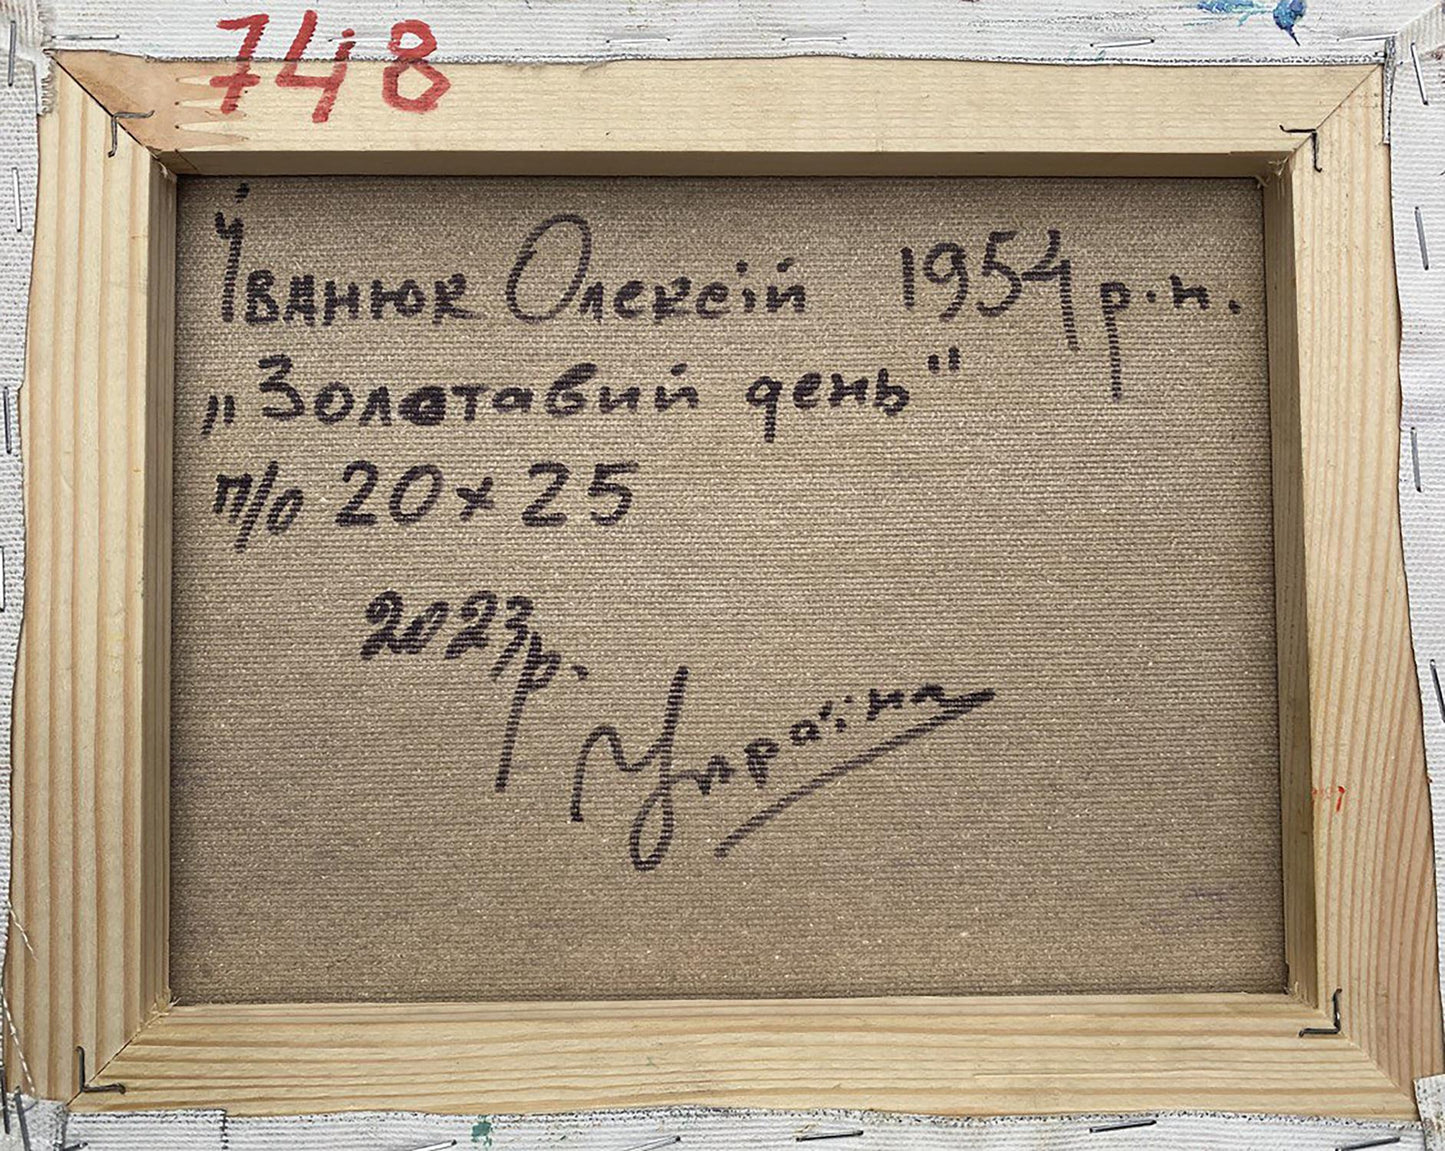 748
Іванюк Олексій 1954 р.н.
„Золотавий день"
п/о 20×25
2023р.
Україна